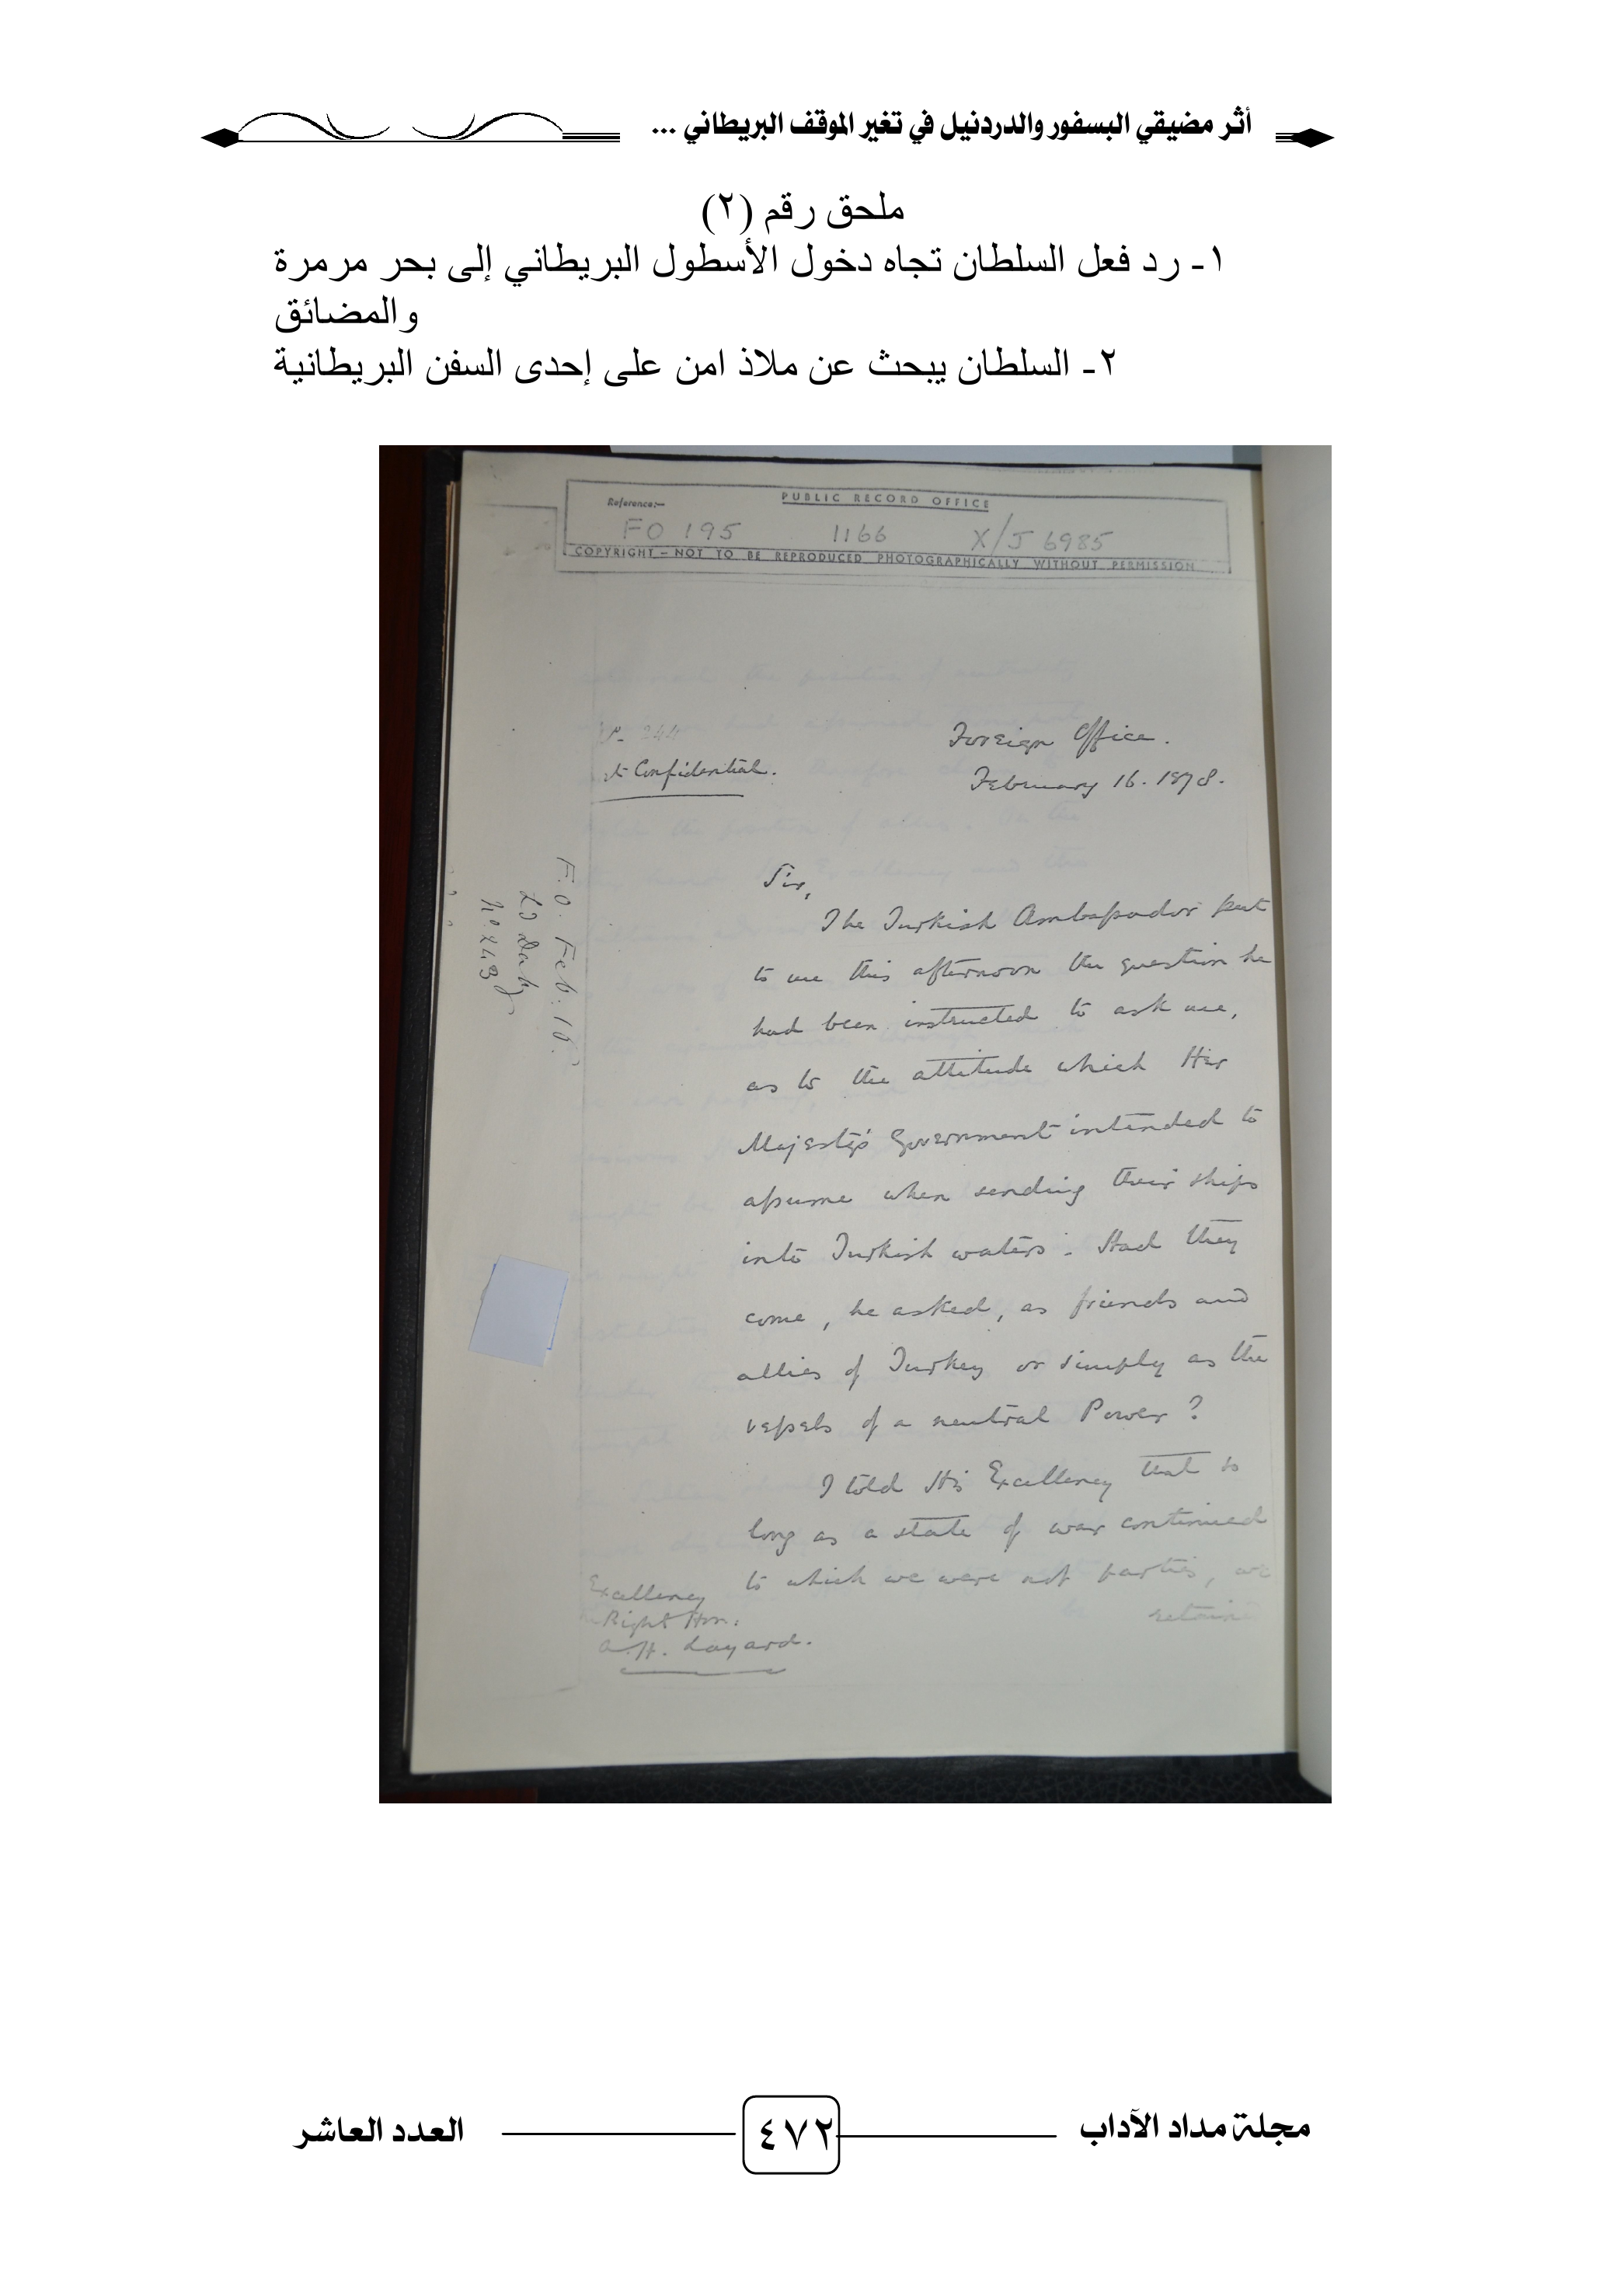 أثر مضيقي البسفور والدردنيل في تغير الموقف البريطاني ...
ملحق رقم (٢)
١- رد فعل السلطان تجاه دخول الأسطول البريطاني إلى بحر مرمرة
والمضائق
٢- السلطان يبحث عن ملاذ امن على إحدى السفن البريطانية
PUBLIC RECORD OFFICE
Reference:-
FO 195 1166 X/J 6985
COPYRIGHT - NOT TO BE REPRODUCED PHOTOGRAPHICALLY WITHOUT PERMISSION
244
Foreign Office.
Confidential.
February 16. 1878.
F.O. Feb. 
Nº 243
Sir,
The Turkish Ambassador put
to me this afternoon the question he
had been instructed to ask me,
as to the attitude which Her
Majesty's Government intended to
assume when sending their ships
into Turkish waters. Had they
come, he asked, as friends and
allies of Turkey or simply as the
vessels of a neutral Power?
I told His Excellency that so
long as a state of war continued
to which we were not parties, we
retain
Excellency
Right Hon.
A. H. Layard.
مجلة مداد الآداب
٤٧٢
العدد العاشر